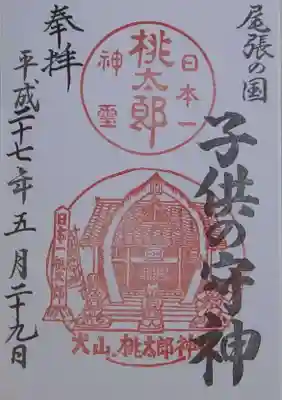 尾張の国
子供の守神
日本一
桃太郎
神霊
犬山 桃太郎神
奉拝
平成二十七年五月二十九日